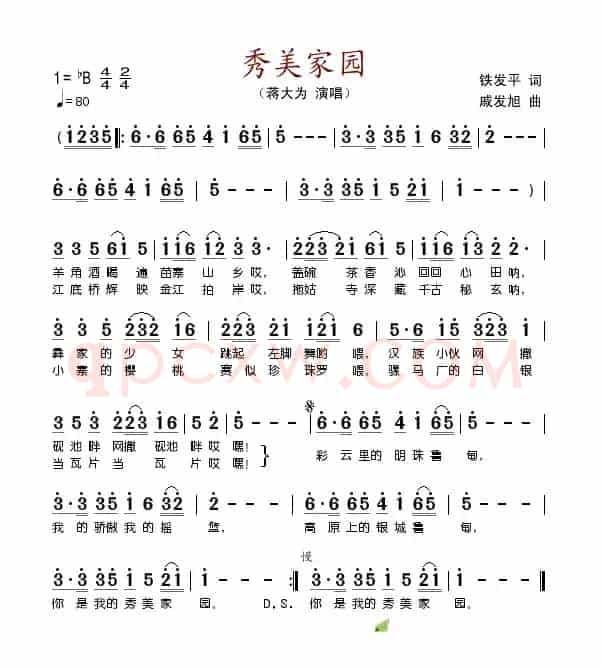 秀美家园
1=♭B 4/4 2/4
♩=80
（蒋大为 演唱）
铁发平 词
戚发旭 曲
(1235 ‖: 6·6 65 4 1 65 | 5 - - - | 3·3 35 1 6 32 | 2 - - - |
6·6 65 4 1 65 | 5 - - - | 3·3 35 1 5 21 | 1 - - - )|
3 3 5 61 5 | 116 12 3 3· | 223 2161 35 | 3 2 2· |
羊角酒喝 遍 苗寨 山 乡 哎， 盖碗 茶香 沁 回回 心 田 呐，
江底桥辉 映 金江 拍 岸 哎， 拖姑 寺深 藏 千古 秘 玄 呐，
3 3 5 232 2 | 223 21 1 2 | 1 1 65 323 1 |
彝家的少 女 跳起 左脚 舞哟 喂， 汉 族 小伙 网 撒
小寨的樱 桃 赛似 珍 珠罗 喂， 骡 马 厂的 白 银
3 5 3 223 16 | 5 2 5· | 6·6 65 4 1 65 | 5 - - - |
砚池 畔 网撒 砚池 畔 哎 嘿！
当瓦 片 当 瓦 片 哎 嘿！
彩 云 里的 明 珠 鲁 甸，
3·3 35 1 6 32 | 2 - - - | 6·6 65 4 1 65 | 5 - - - |
我 的 骄傲 我 的 摇 篮， 高 原 上的 银 城 鲁 甸，
慢
3·3 35 1 5 21 | 1 - - - :‖ 3·3 35 1 5 21 | 1 - - - ‖
你 是 我的 秀 美 家 园。 D.S. 你 是 我的 秀 美 家 园。
qpcxw.com